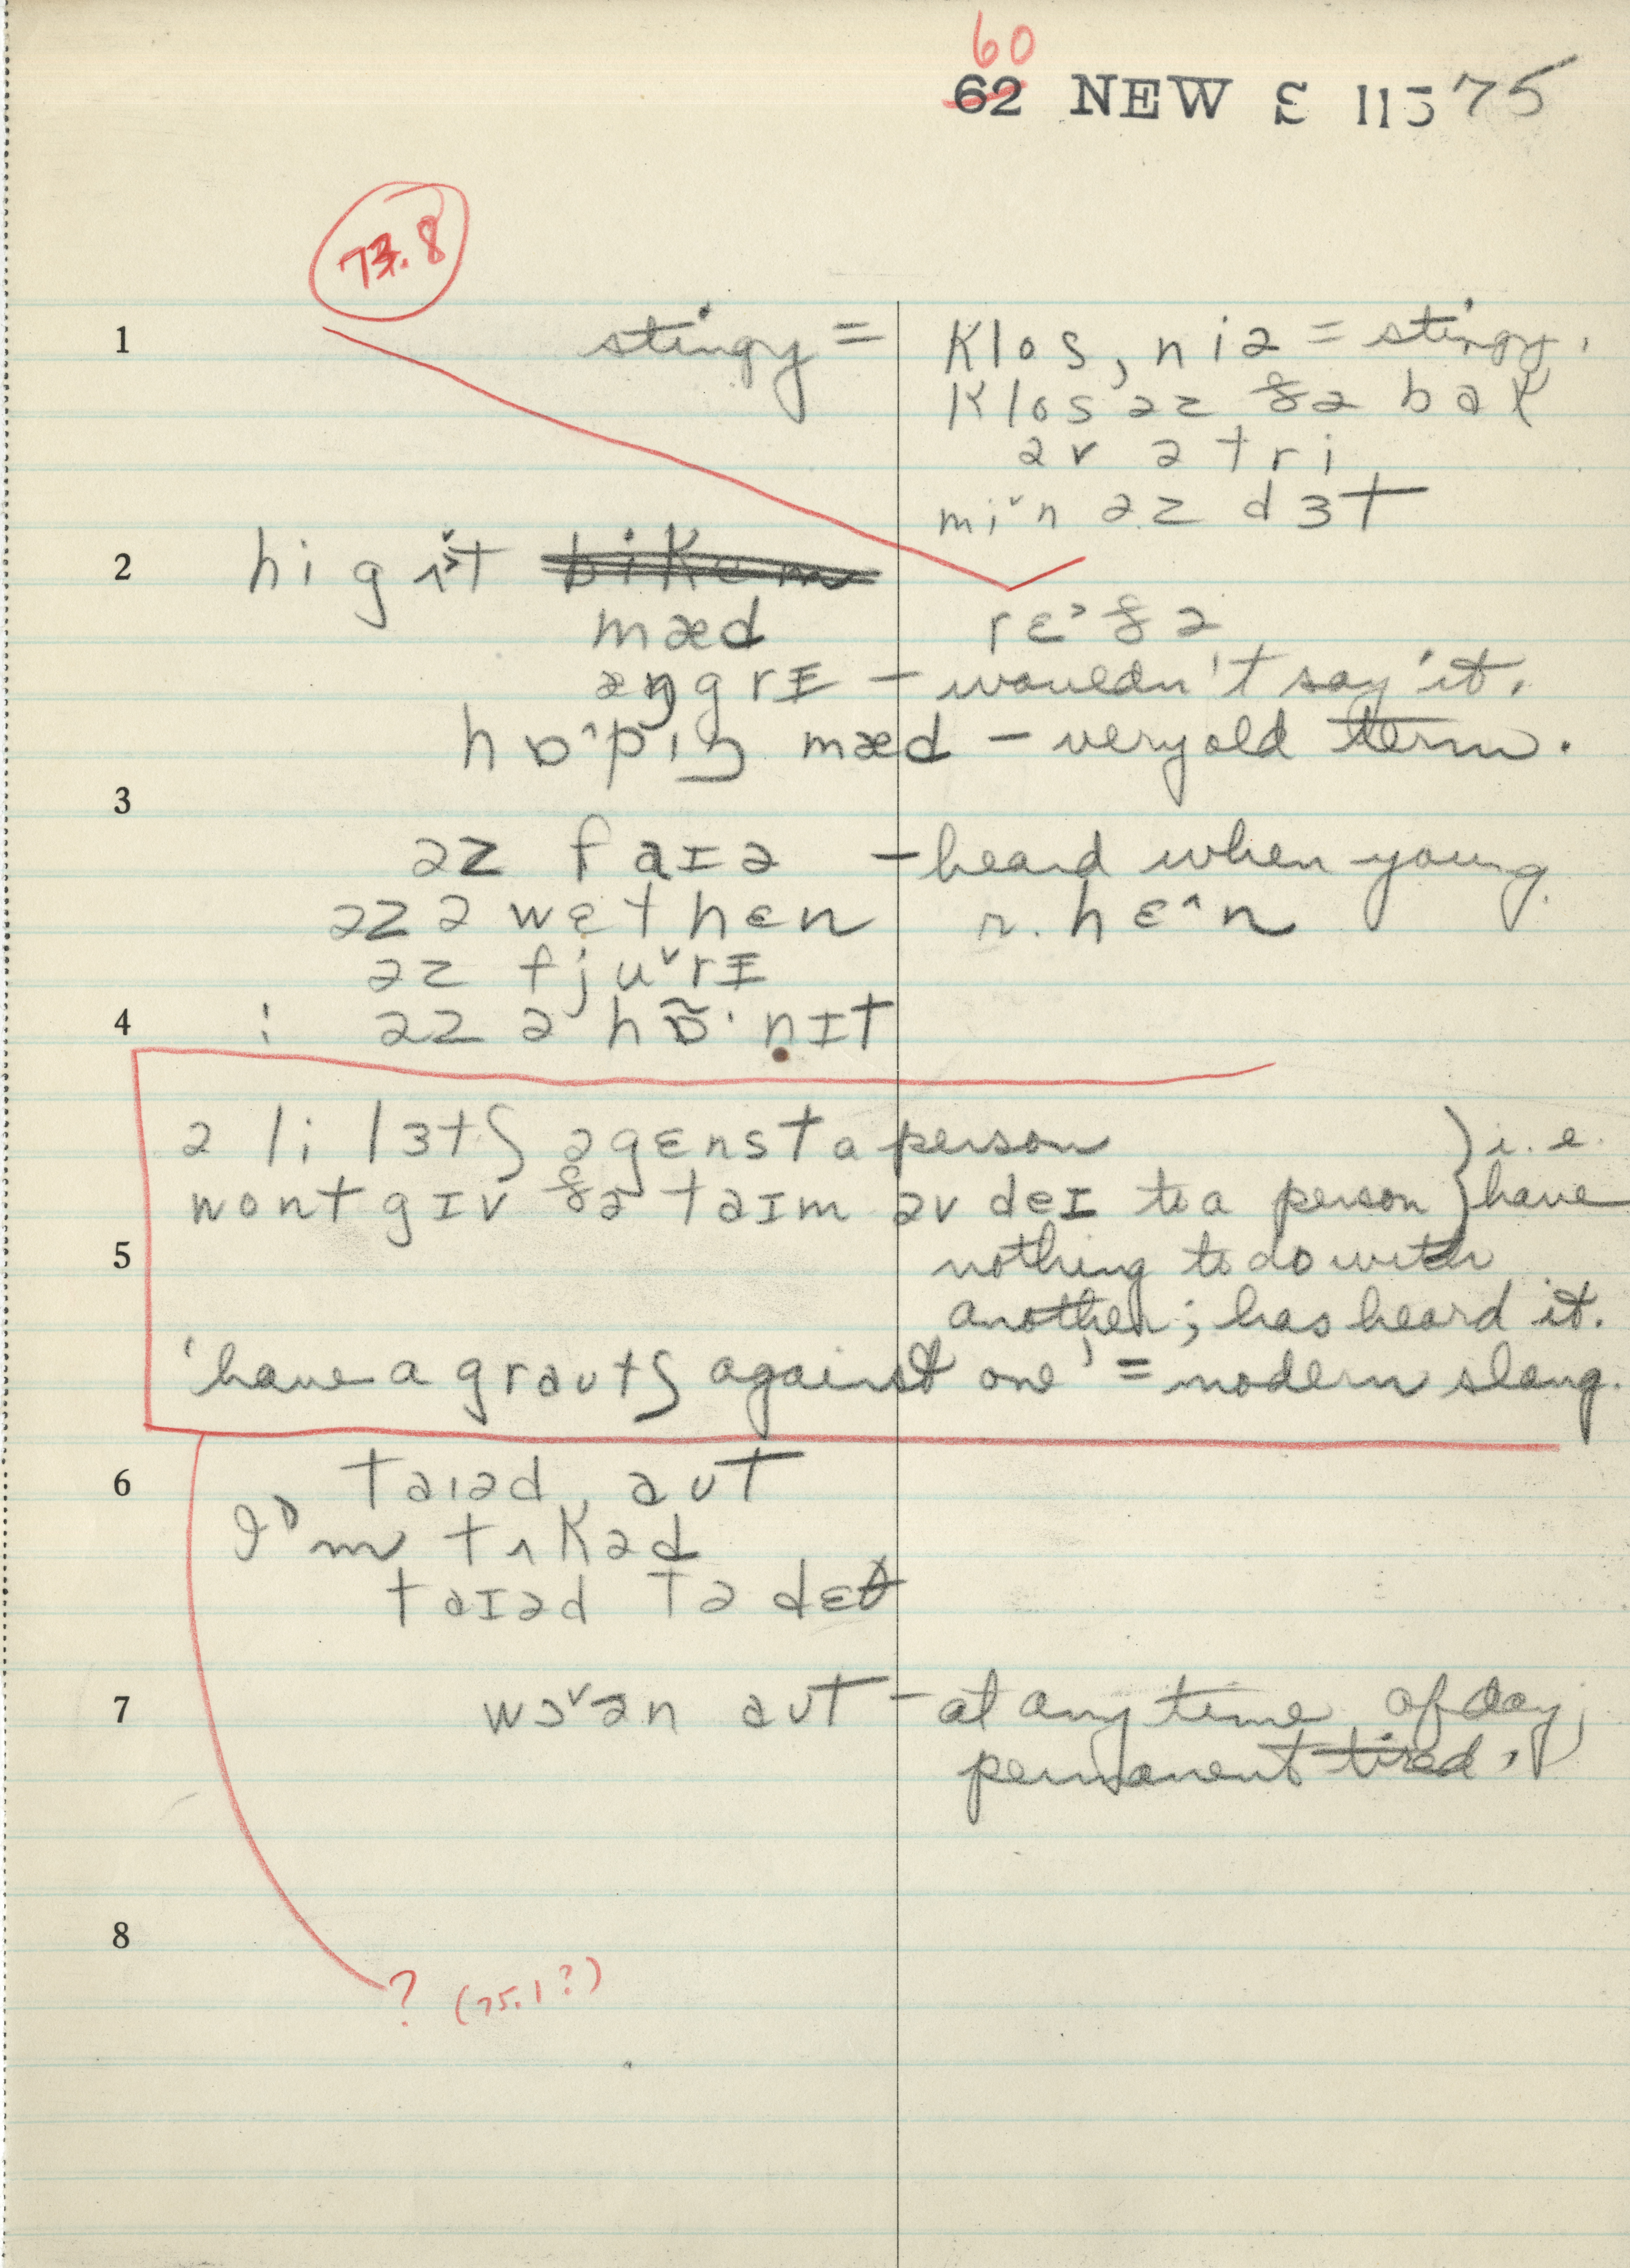 60
62 NEW E 115 75
73.8
1 stingy = klos, niə = stingy.
klos əz ðə bak
əv ə tri
mi˅n əz dɜt
2 hi g ɪt bikem
mæd rɛ˃ðə
æŋgrɪ – wouldn't say it.
hɒ˄pɪŋ mæd – very old term.
3
əz faɪə – heard when young.
əz ə wɛt hɛn r. hɛ˄n
əz fju˅rɪ
4 : əz ə hɒ̃· nɪt
ə li lɜtʃ əgɛnst a person } i.e.
wont gɪv ðə taɪm əv deɪ to a person } have
5 nothing to do with
another; has heard it.
'have a graʊtʃ against one' = modern slang.
6 taɪəd aʊt
I'm tʌkəd
taɪəd tə dɛθ
7 wɔ˅ən aʊt – at any time of day;
permanent tired.
8
? (75.1?)